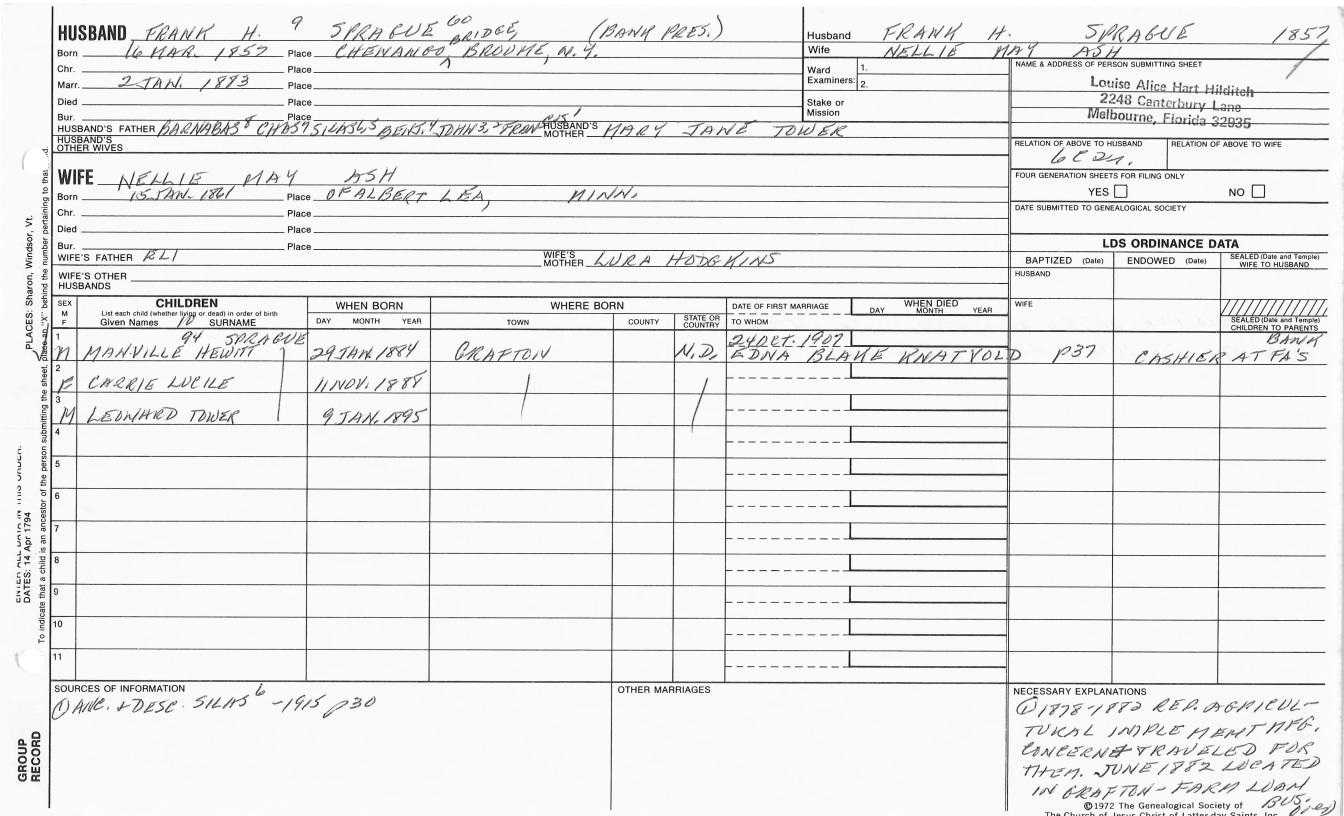 HUSBAND FRANK H. 9 SPRAGUE 60 (BANK PRES.)
Born 16 MAR. 1857 Place CHENANGO BRIDGE, BROOME, N.Y.
Chr. Place
Marr. 2 JAN. 1883 Place
Died Place
Bur. Place
HUSBAND'S FATHER BARNABAS8 CHAS7 SILAS6,5 BENJ.4 JOHN3,2 FRANCIS1 HUSBAND'S MOTHER MARY JANE TOWER
HUSBAND'S OTHER WIVES
WIFE NELLIE MAY ASH
Born 15 JAN. 1861 Place OF ALBERT LEA, MINN.
Chr. Place
Died Place
Bur. Place
WIFE'S FATHER ELI WIFE'S MOTHER LURA HODGKINS
WIFE'S OTHER HUSBANDS
Husband FRANK H. SPRAGUE 1857
Wife NELLIE MAY ASH
Ward Examiners: 1.
2.
Stake or Mission
NAME & ADDRESS OF PERSON SUBMITTING SHEET
Louise Alice Hart Hilditch
2248 Canterbury Lane
Melbourne, Florida 32935
RELATION OF ABOVE TO HUSBAND RELATION OF ABOVE TO WIFE
6C2R.
FOUR GENERATION SHEETS FOR FILING ONLY
YES NO
DATE SUBMITTED TO GENEALOGICAL SOCIETY
LDS ORDINANCE DATA
BAPTIZED (Date) ENDOWED (Date) SEALED (Date and Temple) WIFE TO HUSBAND
HUSBAND
WIFE
SEALED (Date and Temple) CHILDREN TO PARENTS
SEX M F CHILDREN WHEN BORN WHERE BORN DATE OF FIRST MARRIAGE WHEN DIED
List each child (whether living or dead) in order of birth
Given Names 10 SURNAME DAY MONTH YEAR TOWN COUNTY STATE OR COUNTRY TO WHOM DAY MONTH YEAR
1 94 SPRAGUE 24 OCT. 1907 BANK
M MANVILLE HEWITT 29 JAN. 1884 GRAFTON N.D. EDNA BLAKE KNATVOLD P37 CASHIER AT FA'S
2
F CARRIE LUCILE 11 NOV. 1888
3
M LEONHARD TOWER 9 JAN. 1895
4
5
6
7
8
9
10
11
SOURCES OF INFORMATION
① ANC. & DESC. SILAS6 -1915 p30
OTHER MARRIAGES
NECESSARY EXPLANATIONS
① 1878-1882 REP. AGRICUL-
TURAL IMPLEMENT MFG.
CONCERN & TRAVELED FOR
THEM. JUNE 1882 LOCATED
IN GRAFTON - FARM LOAN
BUS.
©1972 The Genealogical Society of
The Church of Jesus Christ of Latter-day Saints, Inc.
PLACES: Sharon, Windsor, Vt.
ENTER ALL DATA IN THIS ORDER:
DATES: 14 Apr 1794
To indicate that a child is an ancestor of the person submitting the sheet, place an "X" behind the number pertaining to that
GROUP RECORD